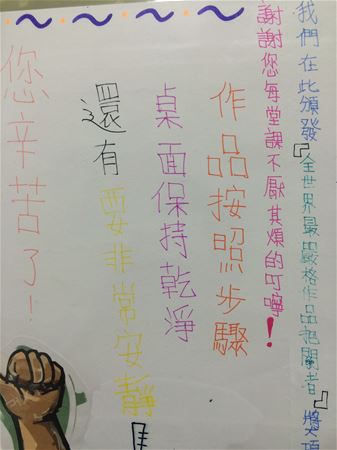 我們在此頒發『全世界最嚴格作品把關者』獎項
謝謝您每堂課不厭其煩的叮嚀！
作品按照步驟
桌面保持乾淨
還有要非常安靜
您辛苦了！